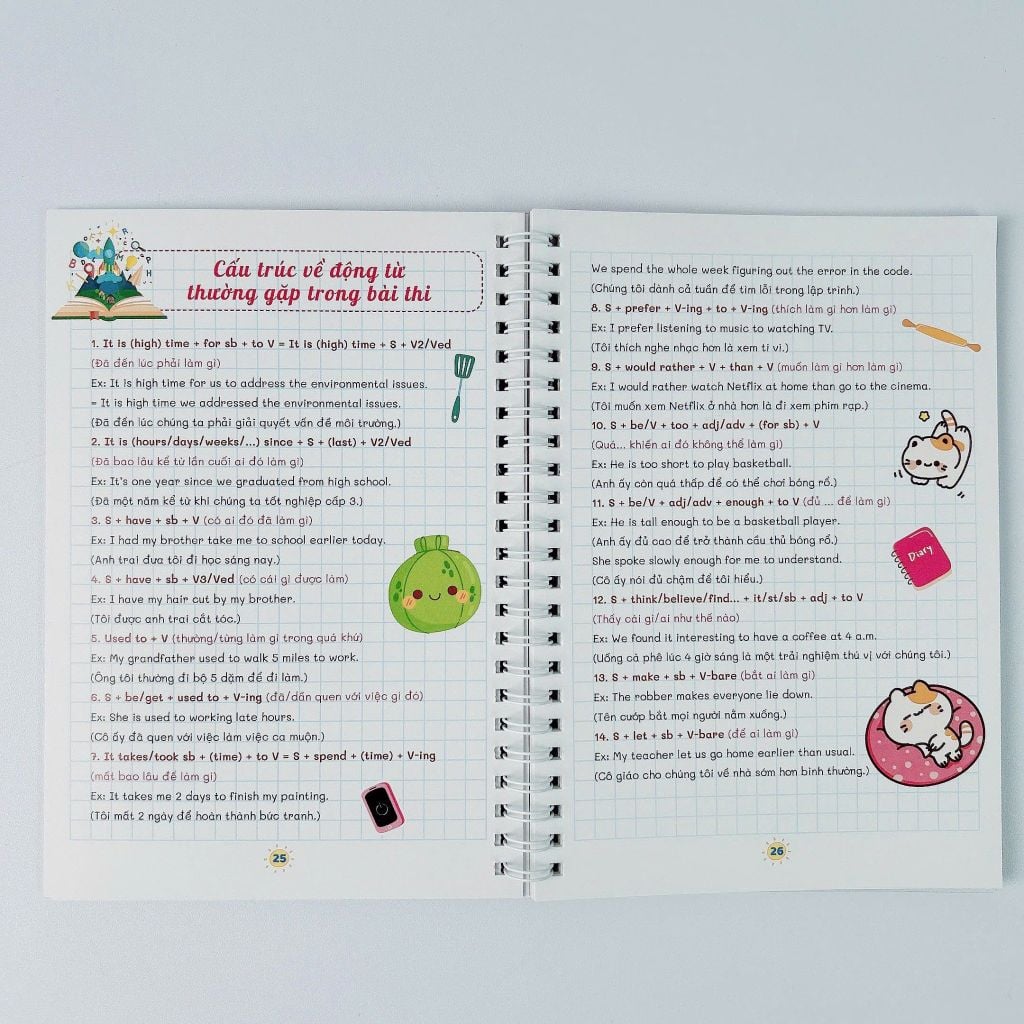 Cấu trúc về động từ
thường gặp trong bài thi
1. It is (high) time + for sb + to V = It is (high) time + S + V2/Ved
(Đã đến lúc phải làm gì)
Ex: It is high time for us to address the environmental issues.
= It is high time we addressed the environmental issues.
(Đã đến lúc chúng ta phải giải quyết vấn đề môi trường.)
2. It is (hours/days/weeks/...) since + S + (last) + V2/Ved
(Đã bao lâu kể từ lần cuối ai đó làm gì)
Ex: It's one year since we graduated from high school.
(Đã một năm kể từ khi chúng ta tốt nghiệp cấp 3.)
3. S + have + sb + V (có ai đó đã làm gì)
Ex: I had my brother take me to school earlier today.
(Anh trai đưa tôi đi học sáng nay.)
4. S + have + sb + V3/Ved (có cái gì được làm)
Ex: I have my hair cut by my brother.
(Tôi được anh trai cắt tóc.)
5. Used to + V (thường/từng làm gì trong quá khứ)
Ex: My grandfather used to walk 5 miles to work.
(Ông tôi thường đi bộ 5 dặm để đi làm.)
6. S + be/get + used to + V-ing (đã/dần quen với việc gì đó)
Ex: She is used to working late hours.
(Cô ấy đã quen với việc làm việc ca muộn.)
7. It takes/took sb + (time) + to V = S + spend + (time) + V-ing
(mất bao lâu để làm gì)
Ex: It takes me 2 days to finish my painting.
(Tôi mất 2 ngày để hoàn thành bức tranh.)
25
We spend the whole week figuring out the error in the code.
(Chúng tôi dành cả tuần để tìm lỗi trong lập trình.)
8. S + prefer + V-ing + to + V-ing (thích làm gì hơn làm gì)
Ex: I prefer listening to music to watching TV.
(Tôi thích nghe nhạc hơn là xem ti vi.)
9. S + would rather + V + than + V (muốn làm gì hơn làm gì)
Ex: I would rather watch Netflix at home than go to the cinema.
(Tôi muốn xem Netflix ở nhà hơn là đi xem phim rạp.)
10. S + be/V + too + adj/adv + (for sb) + V
(Quá... khiến ai đó không thể làm gì)
Ex: He is too short to play basketball.
(Anh ấy còn quá thấp để có thể chơi bóng rổ.)
11. S + be/V + adj/adv + enough + to V (đủ ... để làm gì)
Ex: He is tall enough to be a basketball player.
(Anh ấy đủ cao để trở thành cầu thủ bóng rổ.)
She spoke slowly enough for me to understand.
(Cô ấy nói đủ chậm để tôi hiểu.)
Diary
12. S + think/believe/find... + it/st/sb + adj + to V
(Thấy cái gì/ai như thế nào)
Ex: We found it interesting to have a coffee at 4 a.m.
(Uống cà phê lúc 4 giờ sáng là một trải nghiệm thú vị với chúng tôi.)
13. S + make + sb + V-bare (bắt ai làm gì)
Ex: The robber makes everyone lie down.
(Tên cướp bắt mọi người nằm xuống.)
14. S + let + sb + V-bare (để ai làm gì)
Ex: My teacher let us go home earlier than usual.
(Cô giáo cho chúng tôi về nhà sớm hơn bình thường.)
26